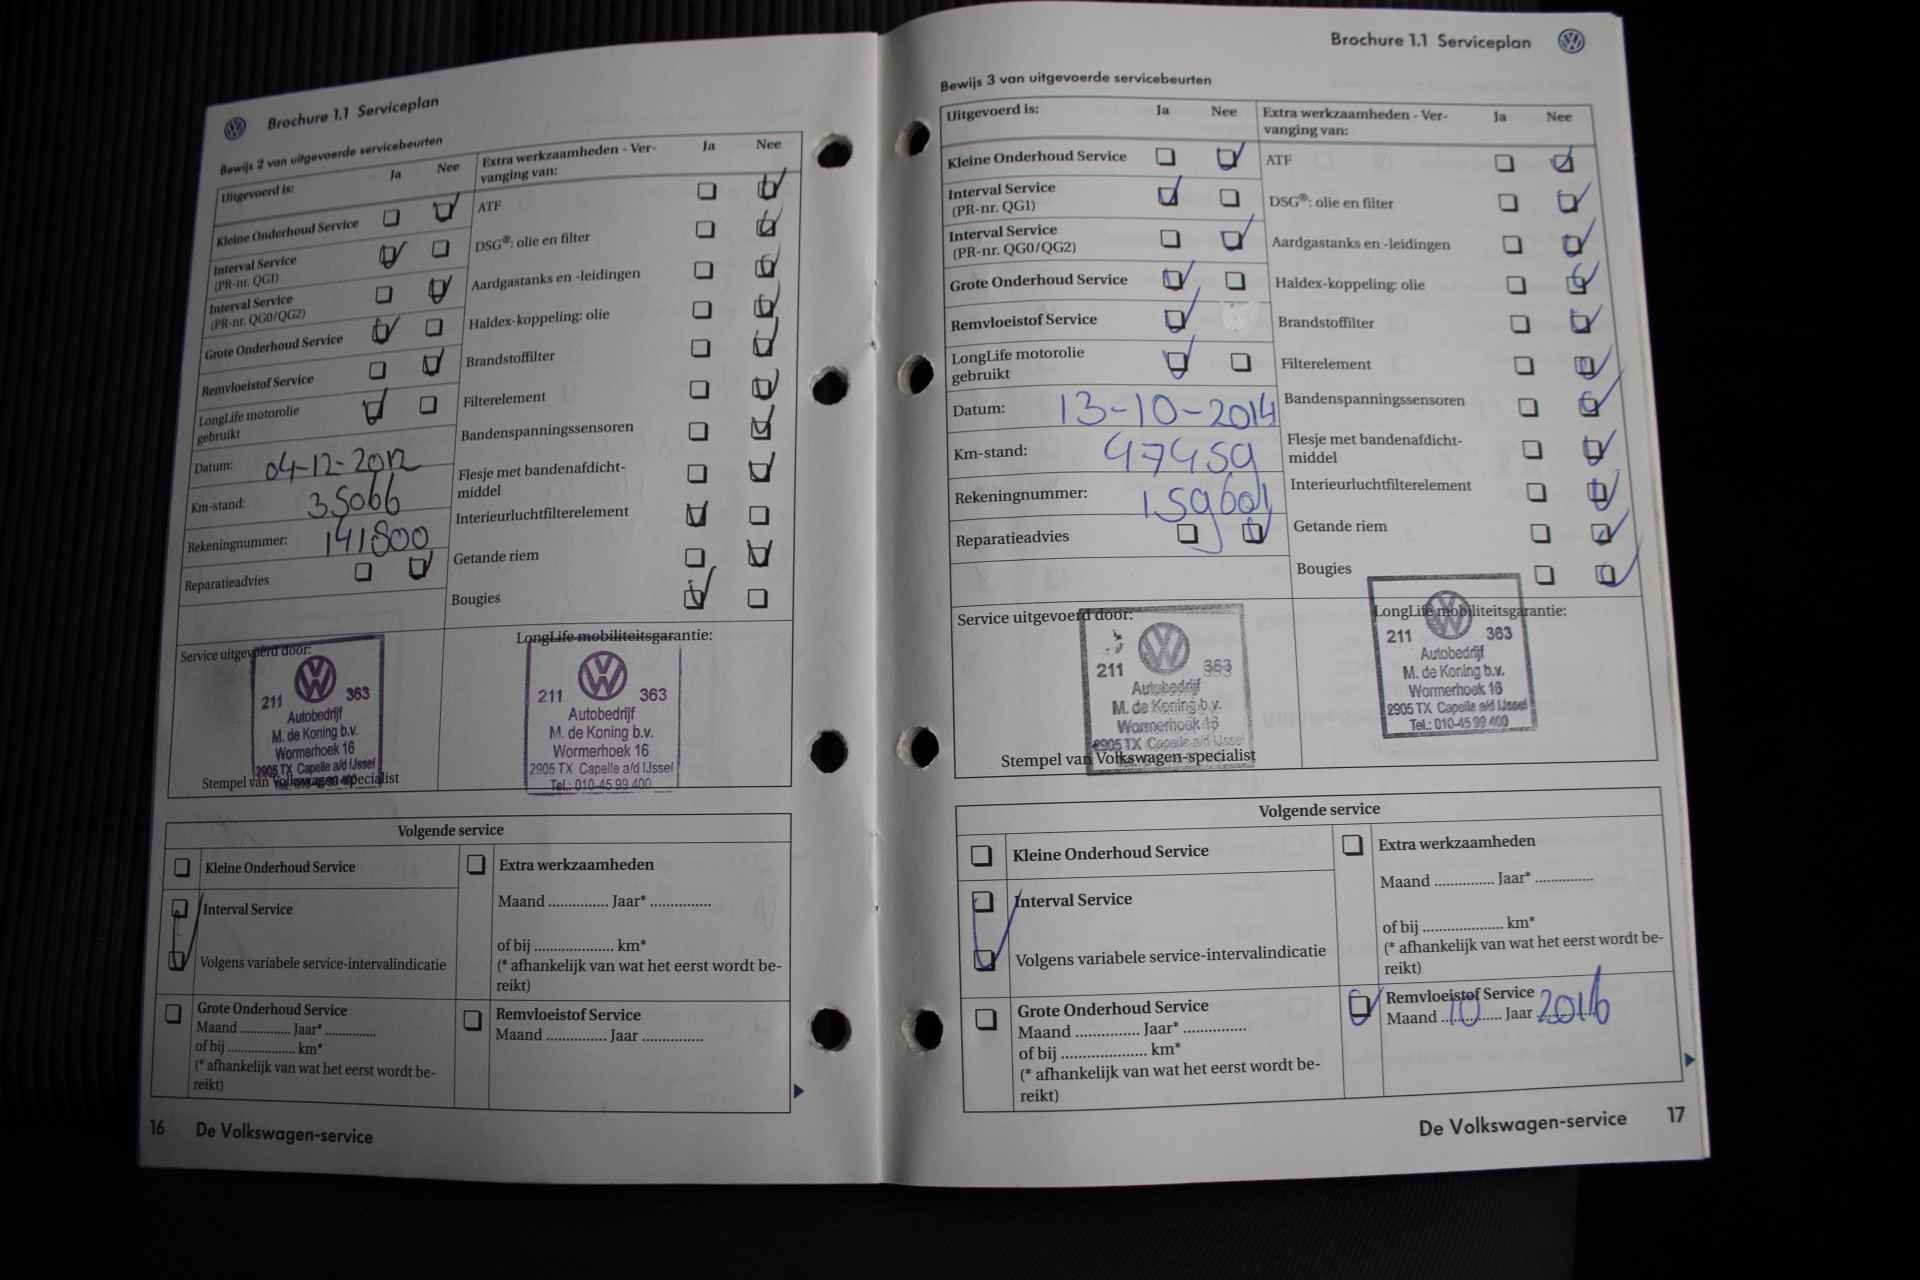 Brochure 1.1 Serviceplan
Bewijs 2 van uitgevoerde servicebeurten
Uitgevoerd is:
Ja Nee
Kleine Onderhoud Service
Interval Service
(PR-nr. QG1)
Interval Service
(PR-nr. QG0/QG2)
Grote Onderhoud Service
Remvloeistof Service
LongLife motorolie
gebruikt
Datum: 04-12-2012
Km-stand: 35066
Rekeningnummer: 141800
Reparatieadvies
Extra werkzaamheden - Ver-
vanging van:
Ja Nee
ATF
DSG®: olie en filter
Aardgastanks en -leidingen
Haldex-koppeling: olie
Brandstoffilter
Filterelement
Bandenspanningssensoren
Flesje met bandenafdicht-
middel
Interieurluchtfilterelement
Getande riem
Bougies
Service uitgevoerd door:
211 363
Autobedrijf
M. de Koning b.v.
Wormerhoek 16
2905 TX Capelle a/d IJssel
Stempel van Volkswagen-specialist
LongLife mobiliteitsgarantie:
211 363
Autobedrijf
M. de Koning b.v.
Wormerhoek 16
2905 TX Capelle a/d IJssel
Tel.: 010-45 99 400
Volgende service
Kleine Onderhoud Service
Interval Service
Volgens variabele service-intervalindicatie
Grote Onderhoud Service
Maand ............... Jaar* ...............
of bij .................... km*
(* afhankelijk van wat het eerst wordt be-
reikt)
Extra werkzaamheden
Maand ............... Jaar* ...............
of bij .................... km*
(* afhankelijk van wat het eerst wordt be-
reikt)
Remvloeistof Service
Maand ............... Jaar ...............
16 De Volkswagen-service
Brochure 1.1 Serviceplan
Bewijs 3 van uitgevoerde servicebeurten
Uitgevoerd is:
Ja Nee
Kleine Onderhoud Service
Interval Service
(PR-nr. QG1)
Interval Service
(PR-nr. QG0/QG2)
Grote Onderhoud Service
Remvloeistof Service
LongLife motorolie
gebruikt
Datum: 13-10-2014
Km-stand: 47459
Rekeningnummer: 159601
Reparatieadvies
Extra werkzaamheden - Ver-
vanging van:
Ja Nee
ATF
DSG®: olie en filter
Aardgastanks en -leidingen
Haldex-koppeling: olie
Brandstoffilter
Filterelement
Bandenspanningssensoren
Flesje met bandenafdicht-
middel
Interieurluchtfilterelement
Getande riem
Bougies
Service uitgevoerd door:
211 363
Autobedrijf
M. de Koning b.v.
Wormerhoek 16
2905 TX Capelle a/d IJssel
Stempel van Volkswagen-specialist
LongLife mobiliteitsgarantie:
211 363
Autobedrijf
M. de Koning b.v.
Wormerhoek 16
2905 TX Capelle a/d IJssel
Tel.: 010-45 99 400
Volgende service
Kleine Onderhoud Service
Interval Service
Volgens variabele service-intervalindicatie
Grote Onderhoud Service
Maand ............... Jaar* ...............
of bij .................... km*
(* afhankelijk van wat het eerst wordt be-
reikt)
Extra werkzaamheden
Maand ............... Jaar* ...............
of bij .................... km*
(* afhankelijk van wat het eerst wordt be-
reikt)
Remvloeistof Service
Maand 10 Jaar 2016
De Volkswagen-service 17